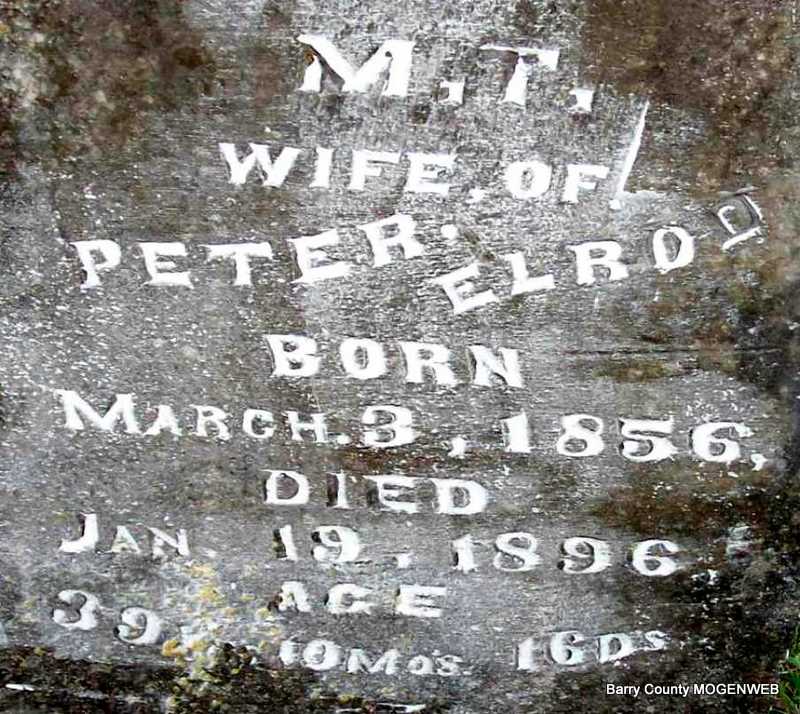 M. T.
WIFE, OF.
PETER. ELROD
BORN
MARCH. 3, 1856,
DIED
JAN. 19, 1896,
AGE
39 10 MOS. 16 DS
Barry County MOGENWEB